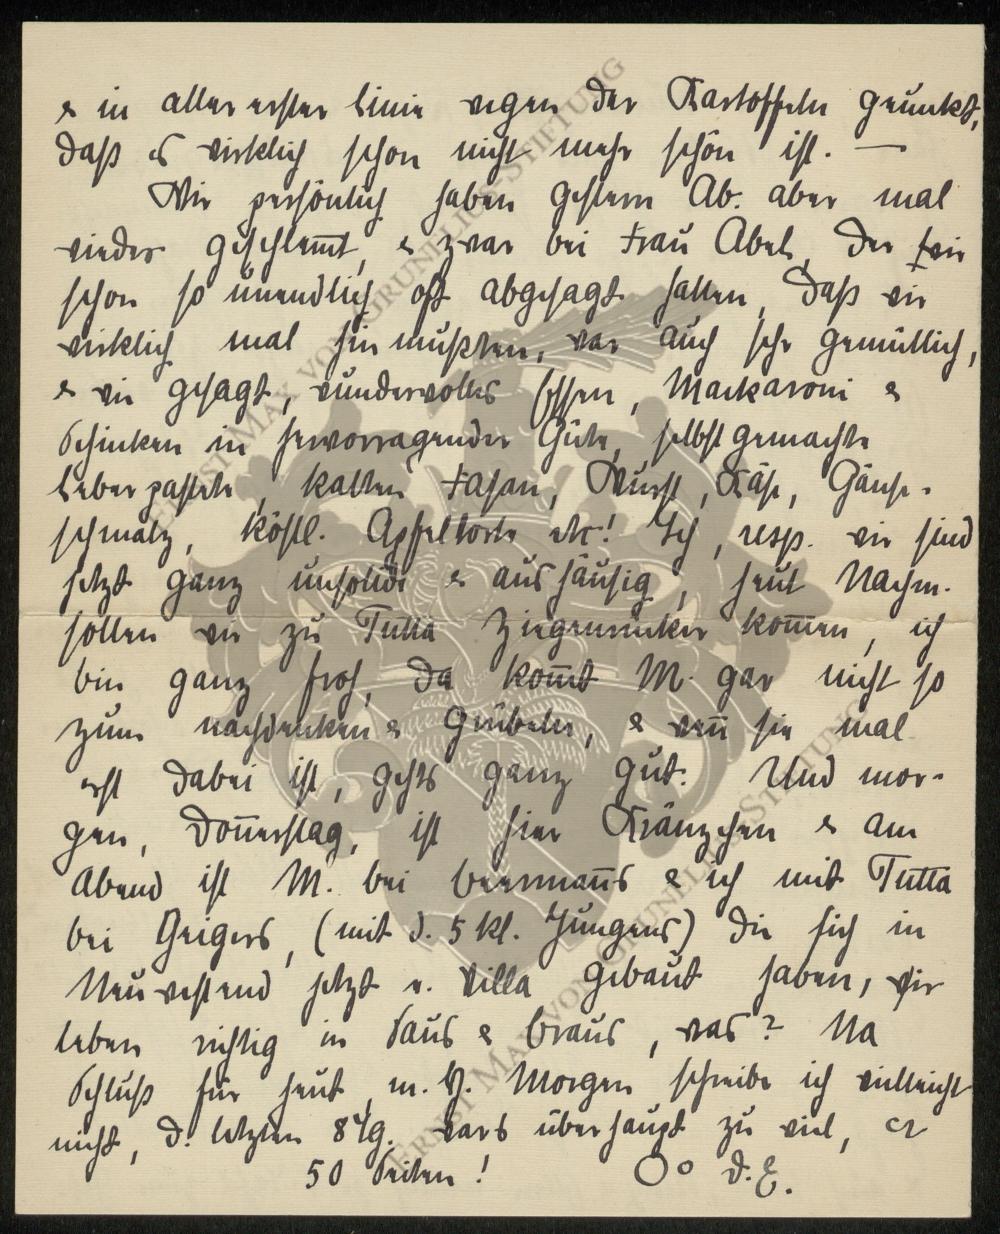 & in aller erster Linie wegen der Kartoffeln geunkt,
daß es wirklich schon nicht mehr schön ist. —
Wir persönlich haben gestern Ab. aber mal
wieder geschlemt, & zwar bei Frau Abel, der wir
schon so unendlich oft abgesagt hatten, daß wir
wirklich mal hin mußten, war auch sehr gemütlich,
& wie gesagt, wundervolles Essen, Mackaroni &
Schinken in hervorragender Güte, selbst gemachte
Leberpastete, kalten Fasan, Wurst, Käse, Gänse-
schmalz, köstl. Apfeltorte etc! Ich, resp. wir sind
jetzt ganz unsolide & aushäusig, heut Nachm.
sollen wir zu Tutta kom̅en, ich
bin ganz froh, da kom̅t M. gar nicht so
zum nachdenken & Grübeln, & wen̅ sie mal
erst dabei ist, gehts ganz gut. Und mor-
gen, Don̅erstag, ist hier Kränzchen & am
Abend ist M. bei & ich mit Tutta
bei Geigers, (mit d. 5 kl. Jungens) die sich in
Neuwestend jetzt e. Villa gebaut haben, wir
leben richtig in Saus & Braus, was? Na
Schluß für heut, m. H. Morgen schreibe ich vielleicht
nicht, d. letzten 8 Tg. wars überhaupt zu viel, ca
50 Seiten! O o D. E.
ERNST MAX VON GRUNELIUS-STIFTUNG
ERNST MAX VON GRUNELIUS-STIFTUNG